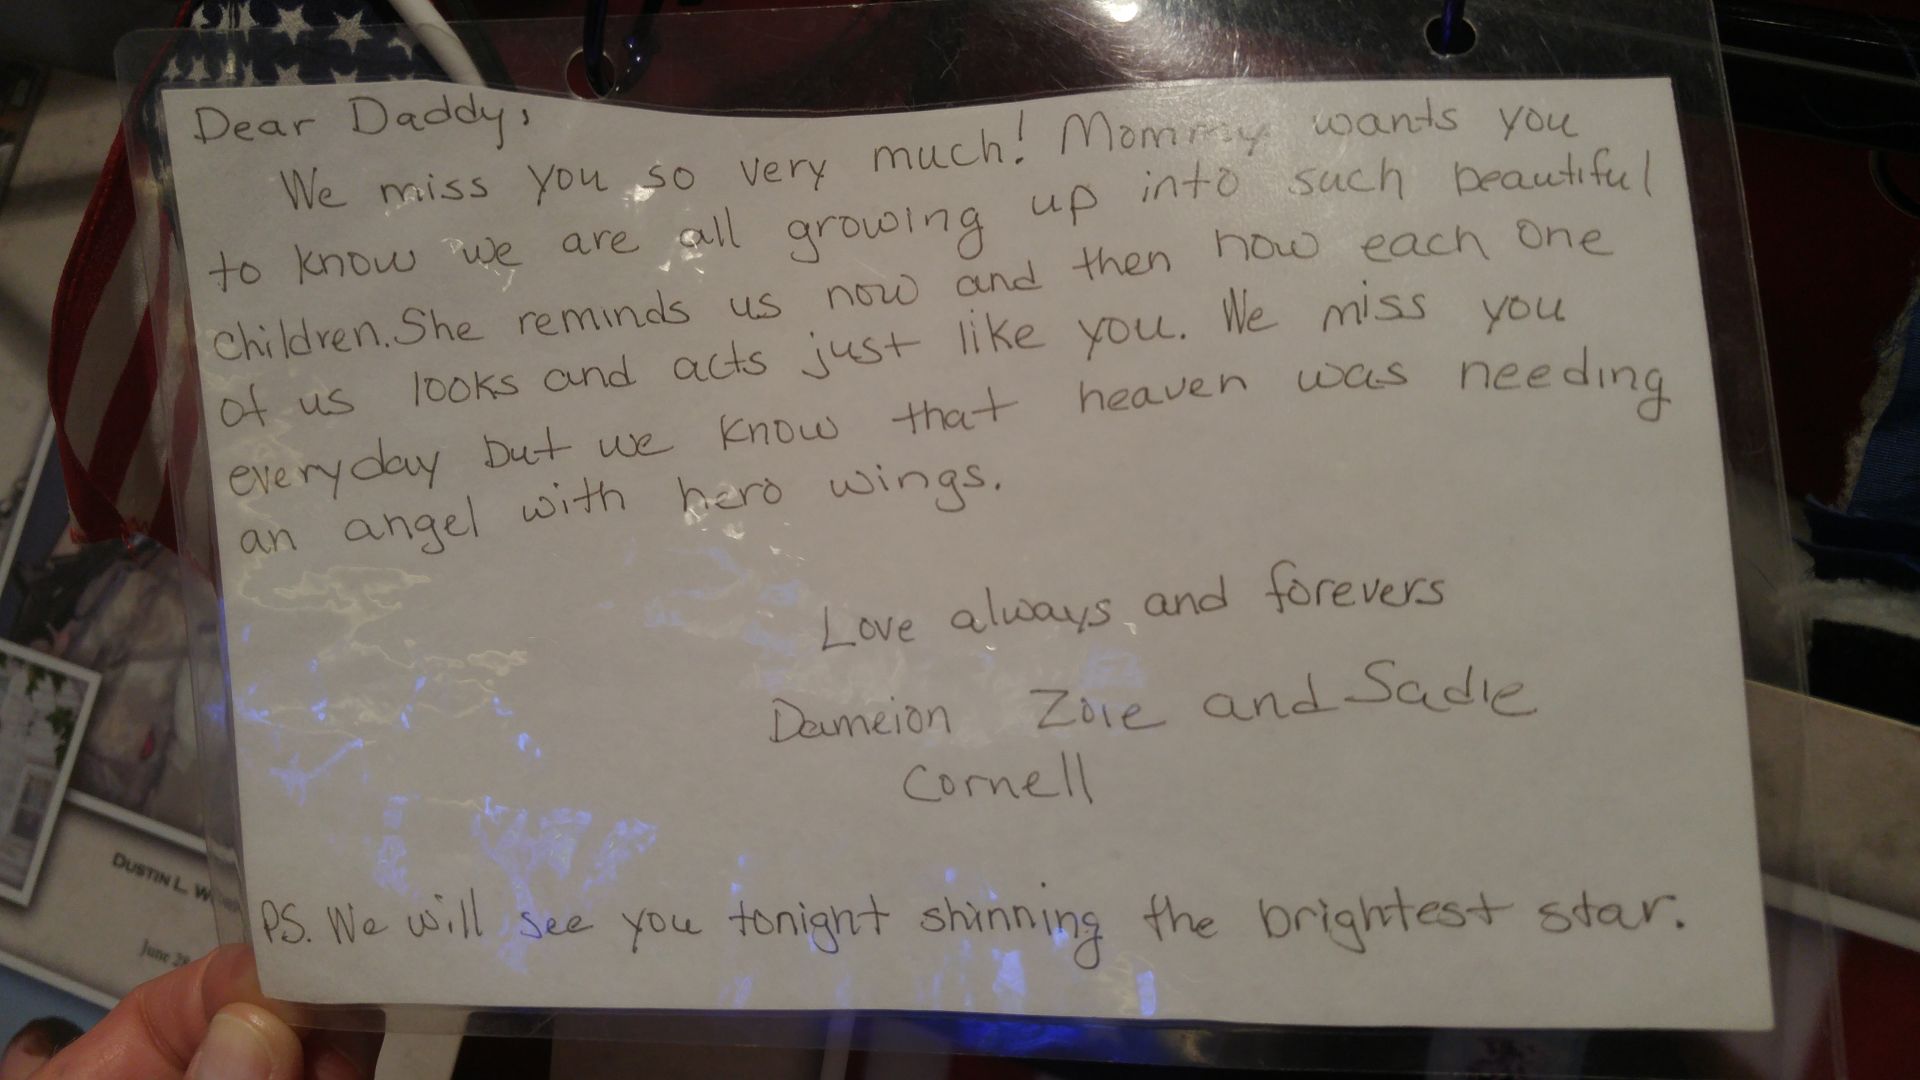 Dear Daddy,
We miss you so very much! Mommy wants you
to know we are all growing up into such beautiful
children. She reminds us now and then how each one
of us looks and acts just like you. We miss you
everyday but we know that heaven was needing
an angel with hero wings.
Love always and forevers
Dameion Zoie and Sadie
Cornell
PS. We will see you tonight shinning the brightest star.
DUSTIN L.
June 28